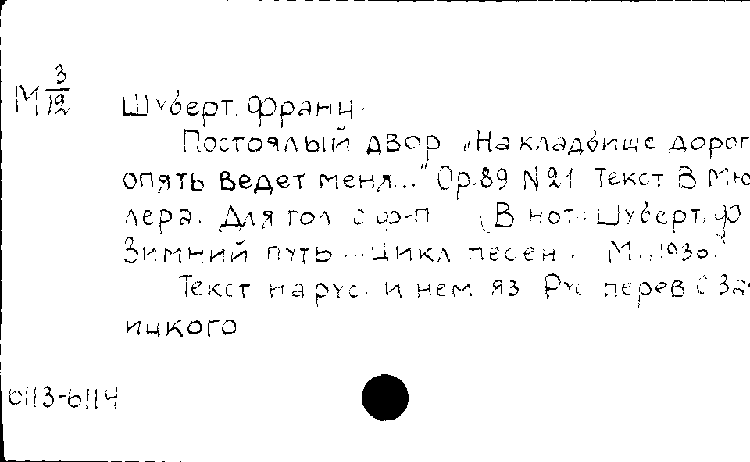 М 3/12 Шуберт, Франц.
Постоялый двор „На кладбище дорог
опять ведет меня..." Ор.89 №21 Текст В Мю
лера. Для гол с ф-п (В нот.: Шуберт, Ф
Зимний путь... Цикл песен. М., 1930.
Текст на рус. и нем яз Рус перев С За
ицкого
6113-6114